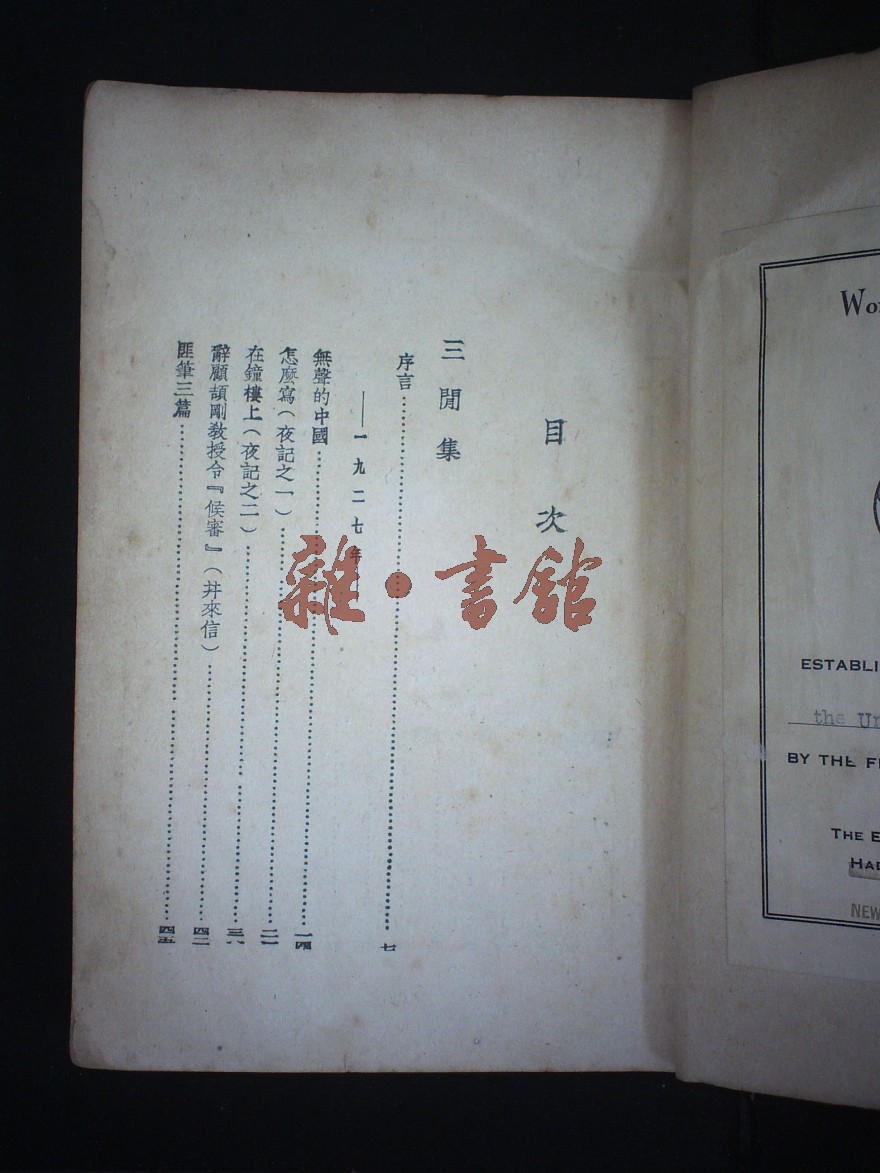 目次
三閒集
序言……七
——一九二七年
無聲的中國……一四
怎麽寫（夜記之一）……二一
在鐘樓上（夜記之二）……三六
辭顧頡剛敎授令『候審』（幷來信）……四二
匪筆三篇……四五
雜·書館
Wo
ESTABLI
the Un
BY THE F
THE E
HA
NEW